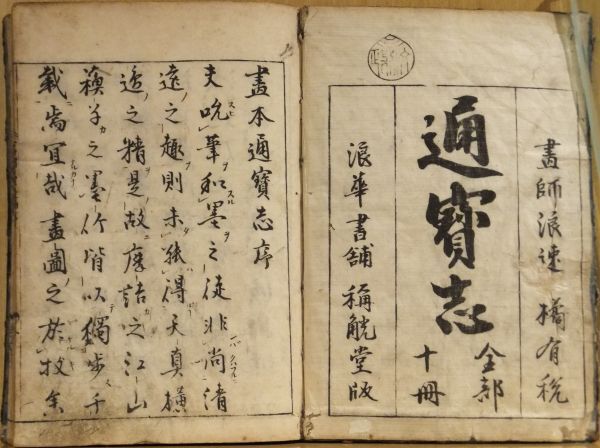 畫師浪速 橘有税
通寶志
全部
十冊
浪華書舗 稱觥堂版
畫本通寶志序
夫吮筆和墨之徒非尚清
遠之趣則未能得天真横
逸之精是故摩詰之江山
子之墨竹皆以獨步千
載焉宜哉畫圖之於